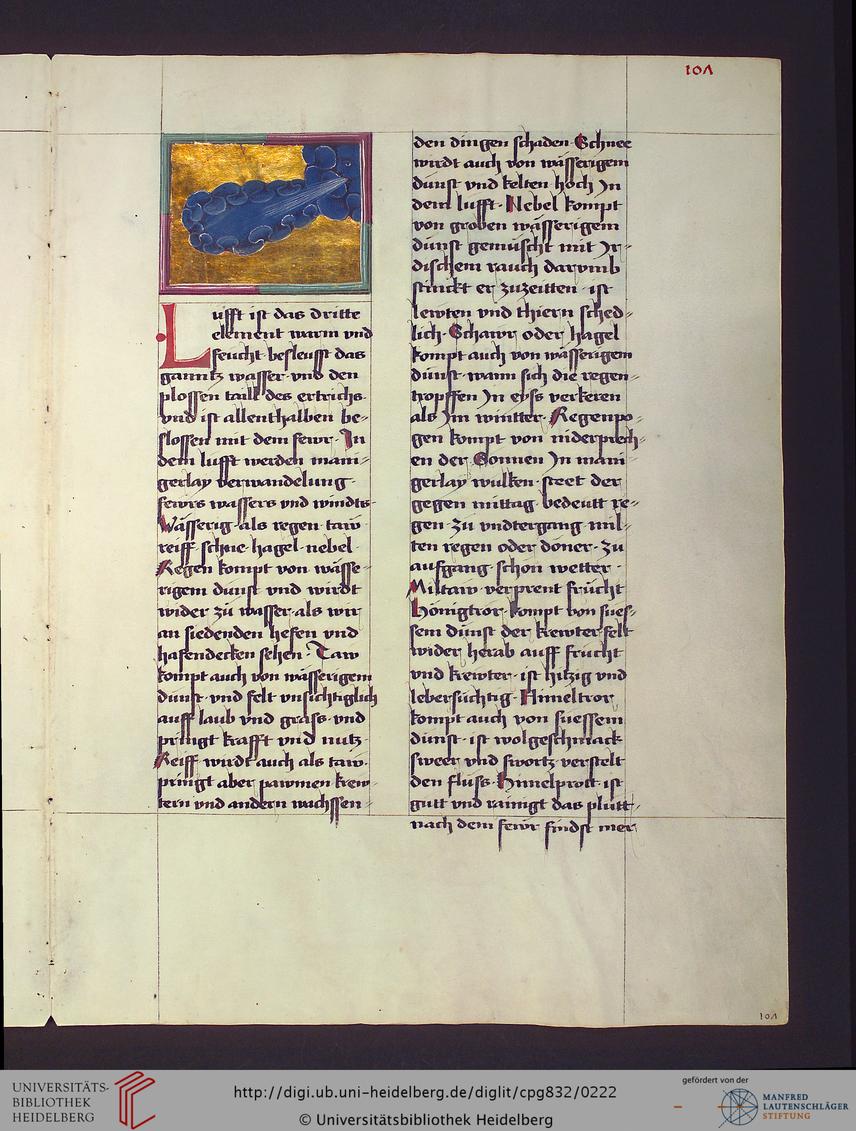 101
Lufft ist das dritte
element warm vnd
feucht besleusst das
ganntz wasser vnd den
plossen taill des ertrichs
vnd ist allenthalben be-
slossen mit dem fewr · In
dem lufft werden mani-
gerlay verwandelung ·
fewrs wassers vnd windts ·
Wässerig · als regen taw
reiff · schne · hagel · nebel ·
Regen kompt von wässe-
rigem dunst vnd wirdt
wider zü wasser · als wir
an siedenden hefen vnd
hafendecken sehen · Taw
kompt auch von wässerigem
dunst · vnd felt vnsichtiglich
auff laub vnd grass · vnd
pringt krafft vnd nutz ·
Reiff wirdt auch als taw ·
pringt aber pawmen krew-
tern vnd andern wachssen-
den dingen schaden · Schnee
wirdt auch von wässerigem
dunst vnd kelten hoch Jn
dem lufft · Nebel kompt
von groben wässerigem
dunst gemüscht mit Jr-
dischem rauch darvmb
stinckt er zuzeitten · ist
lewten vnd thiern sched-
lich · Schawr oder hagel
kompt auch von wässerigem
dunst · wann sich die regen-
tropffen Jn eyss verkeren
als Jm wintter · Regenpo-
gen kompt von niderprech-
en der Sonnen Jn mani-
gerlay wulken · steet der
gegen mittag · bedeutt re-
gen · zu vndtergang · mil-
ten regen oder doner · zu
aufgang · schon wetter ·
Miltaw verprent frücht
Hönigtror kompt von sues-
sem dunst der krewter felt
wider herab auff frücht
vnd krewter · ist hitzig vnd
lebersüchtig · Himeltror
kompt auch von suessem
dunst · ist wolgeschmack
sweer vnd swortz · verstelt
den fluss · Himelprott ist
gutt vnd rainigt das plutt ·
nach dem fewr findst mer
101
UNIVERSITÄTS-
BIBLIOTHEK
HEIDELBERG
http://digi.ub.uni-heidelberg.de/diglit/cpg832/0222
© Universitätsbibliothek Heidelberg
gefördert von der
MANFRED
LAUTENSCHLÄGER
STIFTUNG